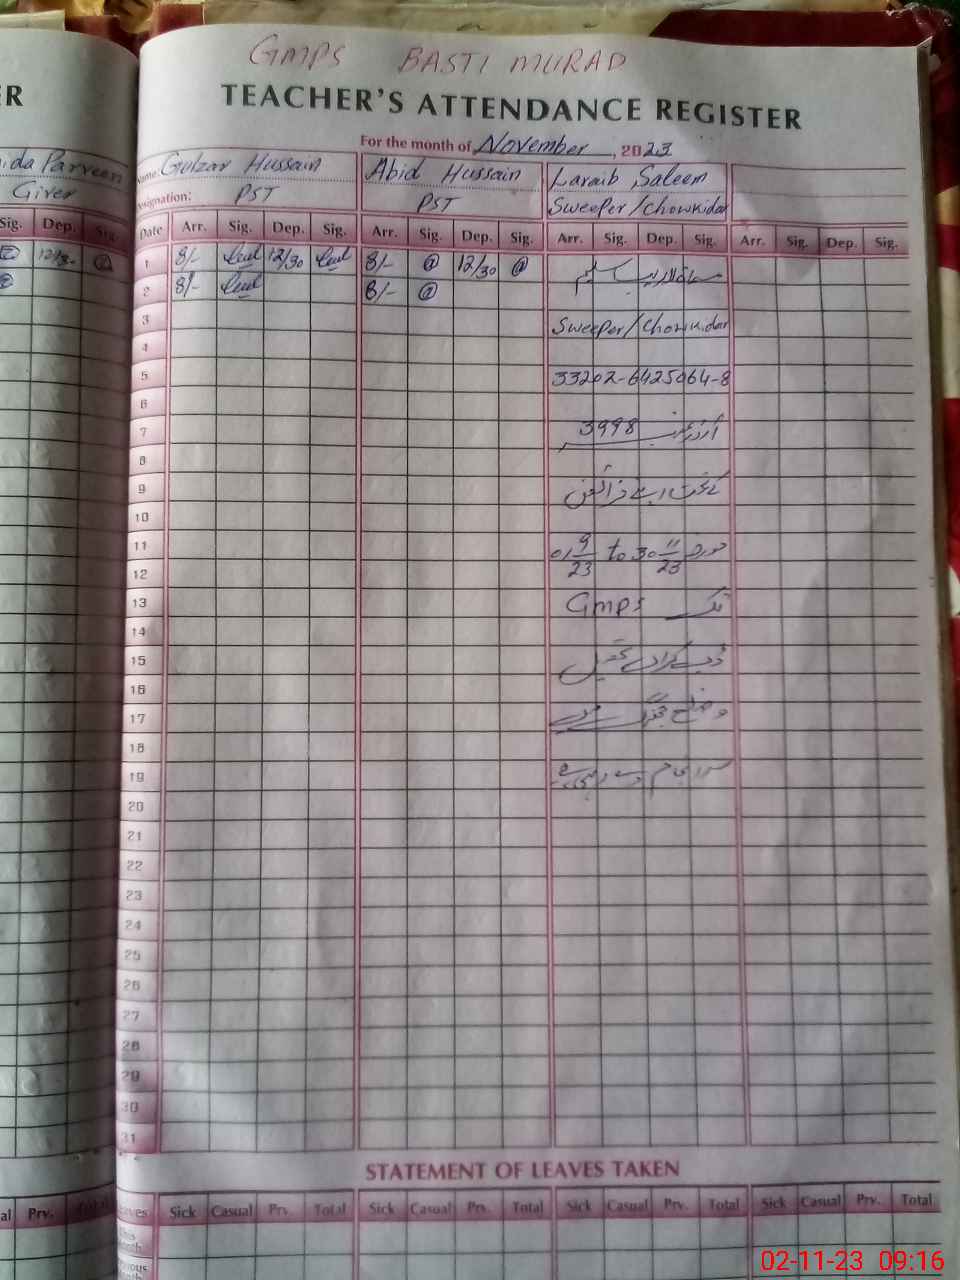 GMPS BASTI MURAD
ER
TEACHER'S ATTENDANCE REGISTER
For the month of November, 2023
Parveen
Name: Gulzar Hussain Abid Hussain Laraib Saleem
Giver
Designation: PST PST Sweeper/Chowkidar
Sig. Dep. Sig. Date Arr. Sig. Dep. Sig. Arr. Sig. Dep. Sig. Arr. Sig. Dep. Sig. Arr. Sig. Dep. Sig.
12/30 1 8/- 12/30 8/- 12/30
2 8/- 8/-
3 Sweeper/Chowkidar
4
5 33202-6425064-8
6
7 آرڈر نمبر 3998
8
9 کے تحت اپنے فرائض
10
11 مورخہ 01 9/23 to 30 11/23
12
13 تک GMPS
14
15
16
17
18
19
20
21
22
23
24
25
26
27
28
29
30
31
STATEMENT OF LEAVES TAKEN
Prv. Total Leaves Sick Casual Prv. Total Sick Casual Prv. Total Sick Casual Prv. Total Sick Casual Prv. Total
This Month
Previous Month
02-11-23 09:16